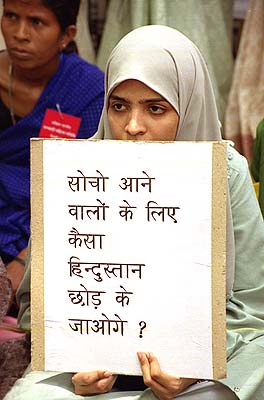 सोचो आने
वालों के लिए
कैसा
हिन्दुस्तान
छोड़ के
जाओगे ?